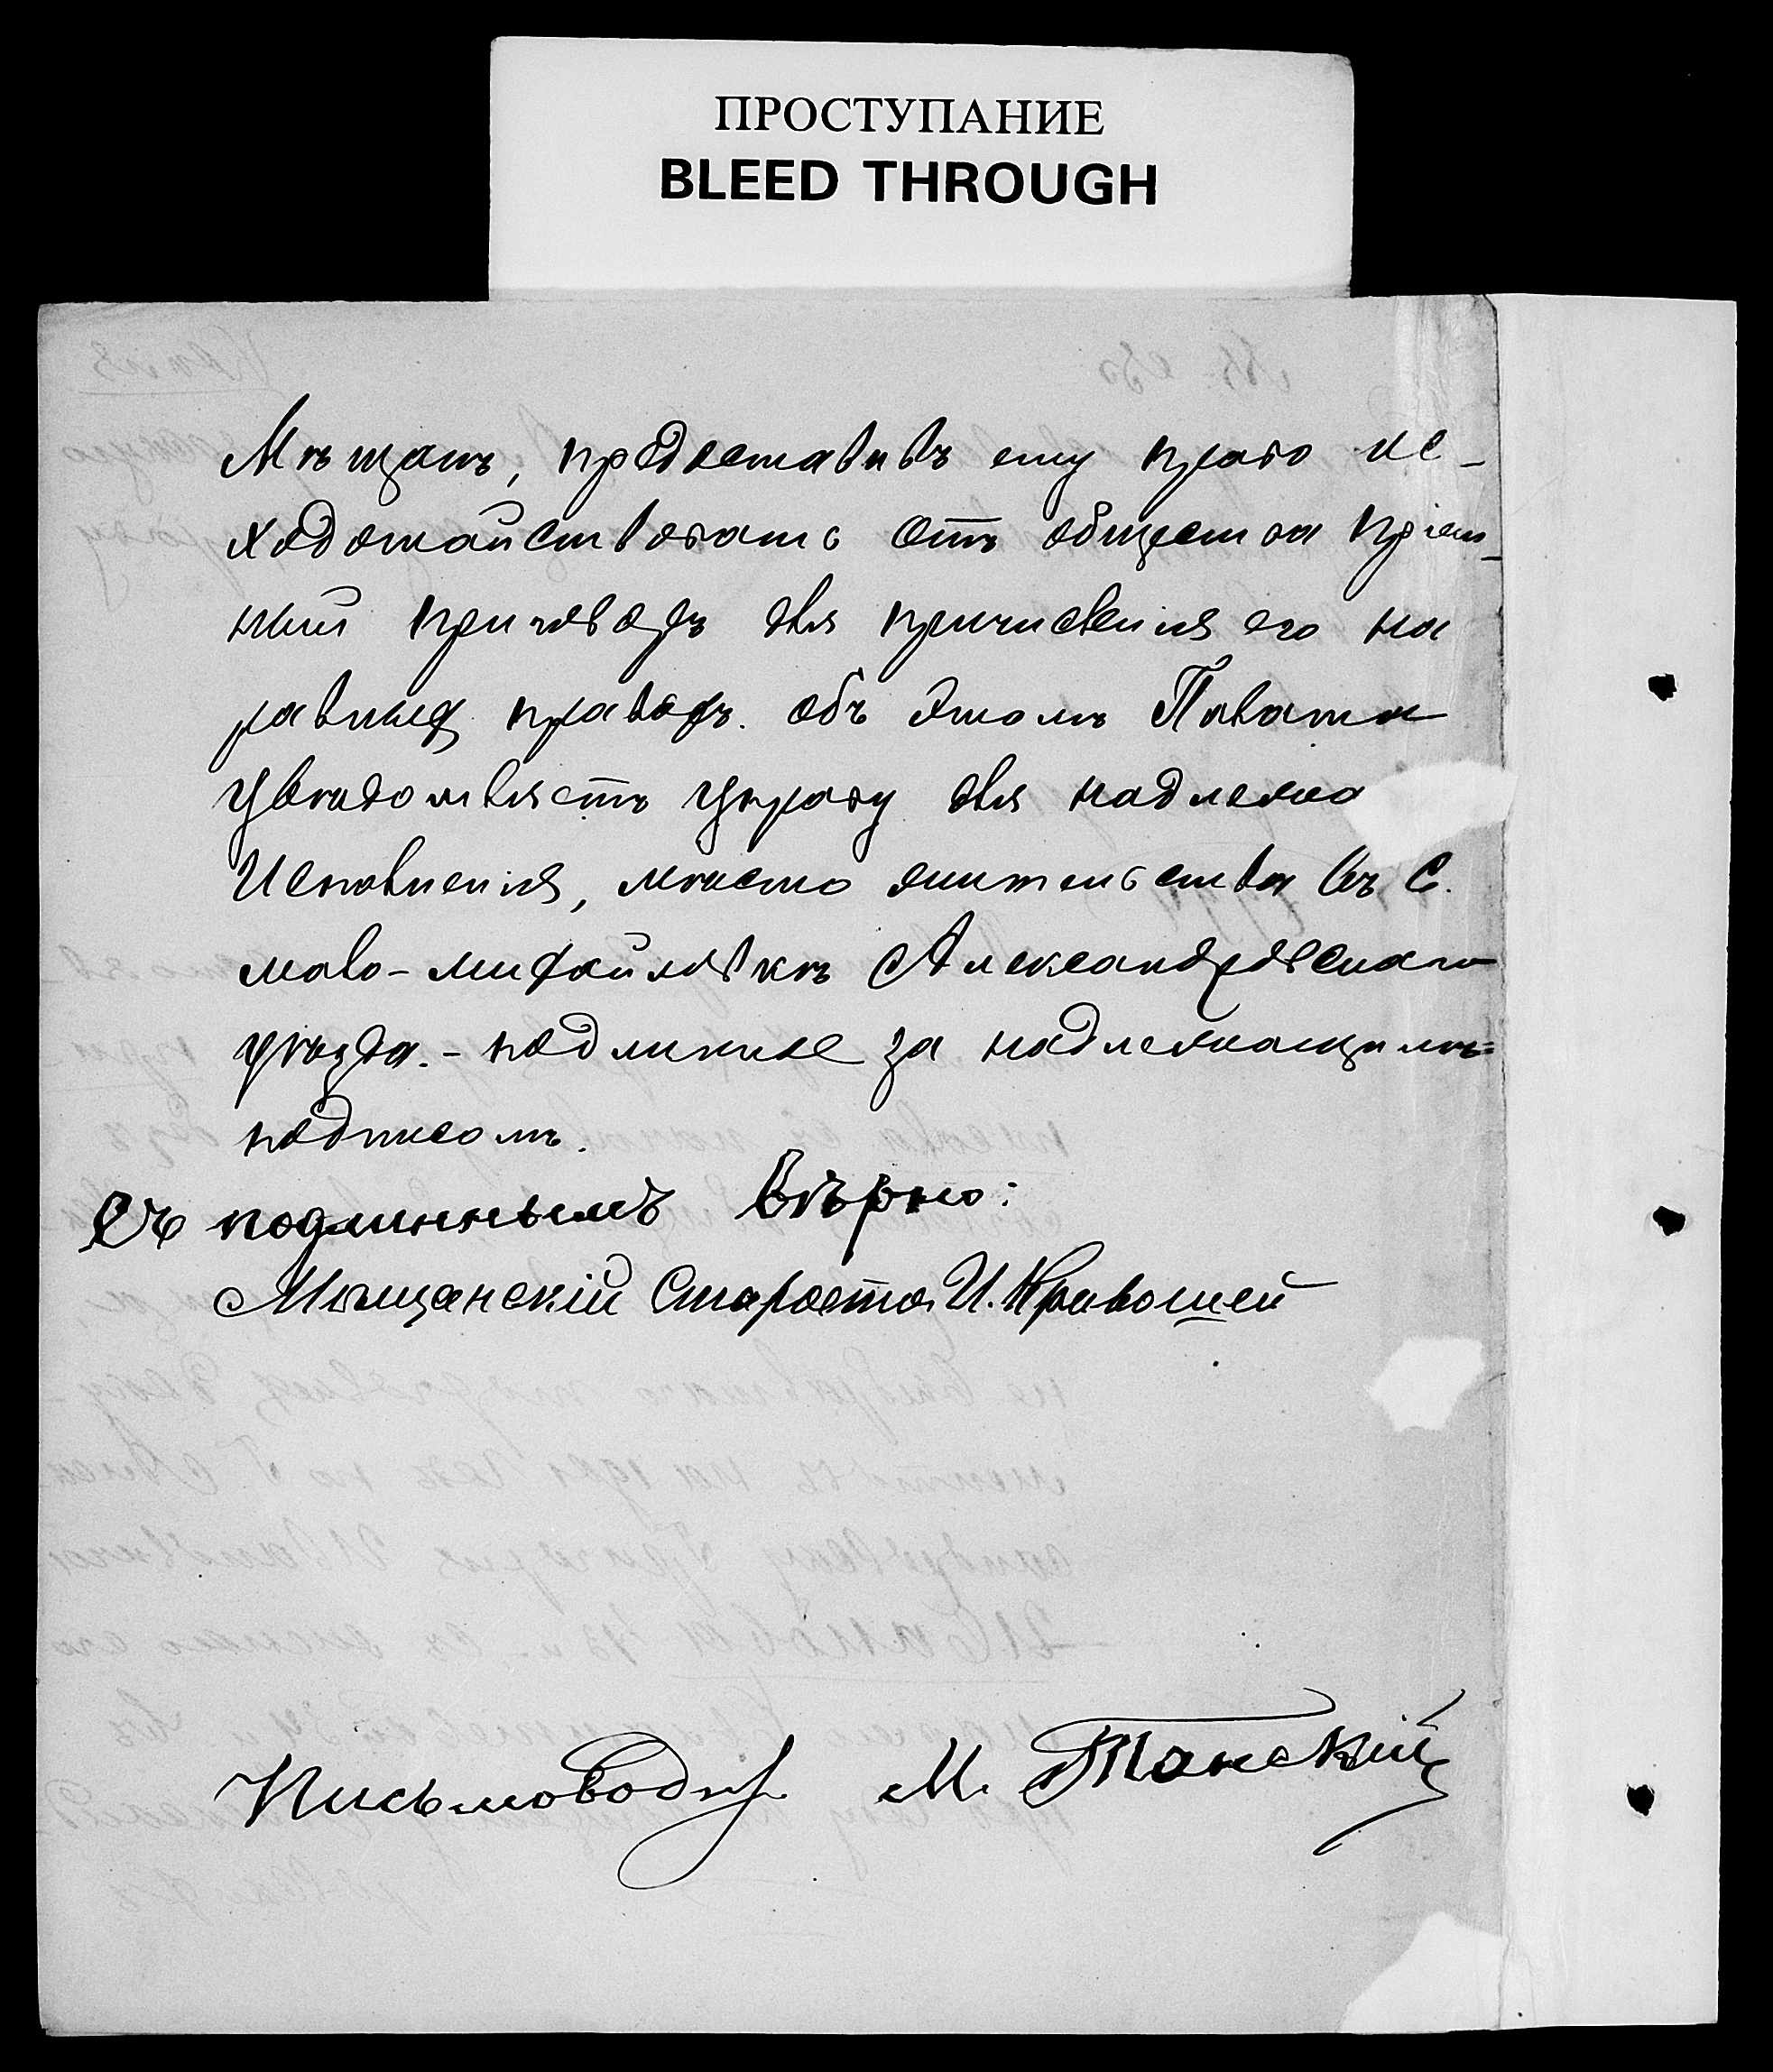 ПРОСТУПАНИЕ
BLEED THROUGH
Мѣщанъ, предоставивъ ему право ис-
ходотайствовать отъ общества пріем-
ный приговоръ для причисленія его на
равныхъ правахъ. Объ этомъ Палата
увѣдомляетъ управу для надлежа
Исполненія, мѣсто жительства въ С.
Ново-Михайловкѣ Александровскаго
уѣзда. - Подлинное за надлежащимъ
подписомъ.
Съ подлиннымъ Вѣрно:
Мѣщанскій Староста И. Кривошей
Письмоводит. М. Танскій